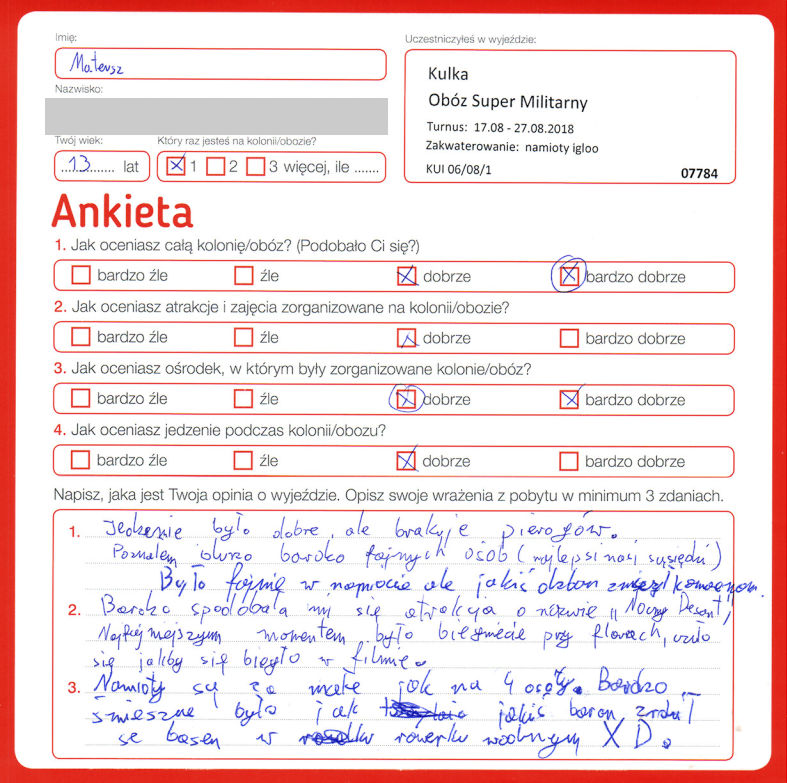 Imię:
Mateusz
Uczestniczyłeś w wyjeździe:
Kulka
Obóz Super Militarny
Turnus: 17.08 - 27.08.2018
Zakwaterowanie: namioty igloo
KUI 06/08/1
07784
Nazwisko:
Twój wiek:
Który raz jesteś na kolonii/obozie?
13 lat
1 2 3 więcej, ile .......
Ankieta
1. Jak oceniasz całą kolonię/obóz? (Podobało Ci się?)
bardzo źle źle dobrze bardzo dobrze
2. Jak oceniasz atrakcje i zajęcia zorganizowane na kolonii/obozie?
bardzo źle źle dobrze bardzo dobrze
3. Jak oceniasz ośrodek, w którym były zorganizowane kolonie/obóz?
bardzo źle źle dobrze bardzo dobrze
4. Jak oceniasz jedzenie podczas kolonii/obozu?
bardzo źle źle dobrze bardzo dobrze
Napisz, jaka jest Twoja opinia o wyjeździe. Opisz swoje wrażenia z pobytu w minimum 3 zdaniach.
1. Jedzenie było dobre, ale brakuje pierogów.
Poznałem dużo bardzo fajnych osób (najlepsi nasi sąsiedzi)
Było fajnie w namiocie ale jakiś dzban
2. Bardzo spodobała mi się atrakcja o nazwie „Nocny Desant",
Najfajniejszym momentem było biegnięcie przy flarach, czuło
się jakby się biegło w filmie.
3. Namioty są za małe jak na 4 osoby. Bardzo
śmieszne było jak jakiś baran zrobił
se basen w rowerku wodnym XD.